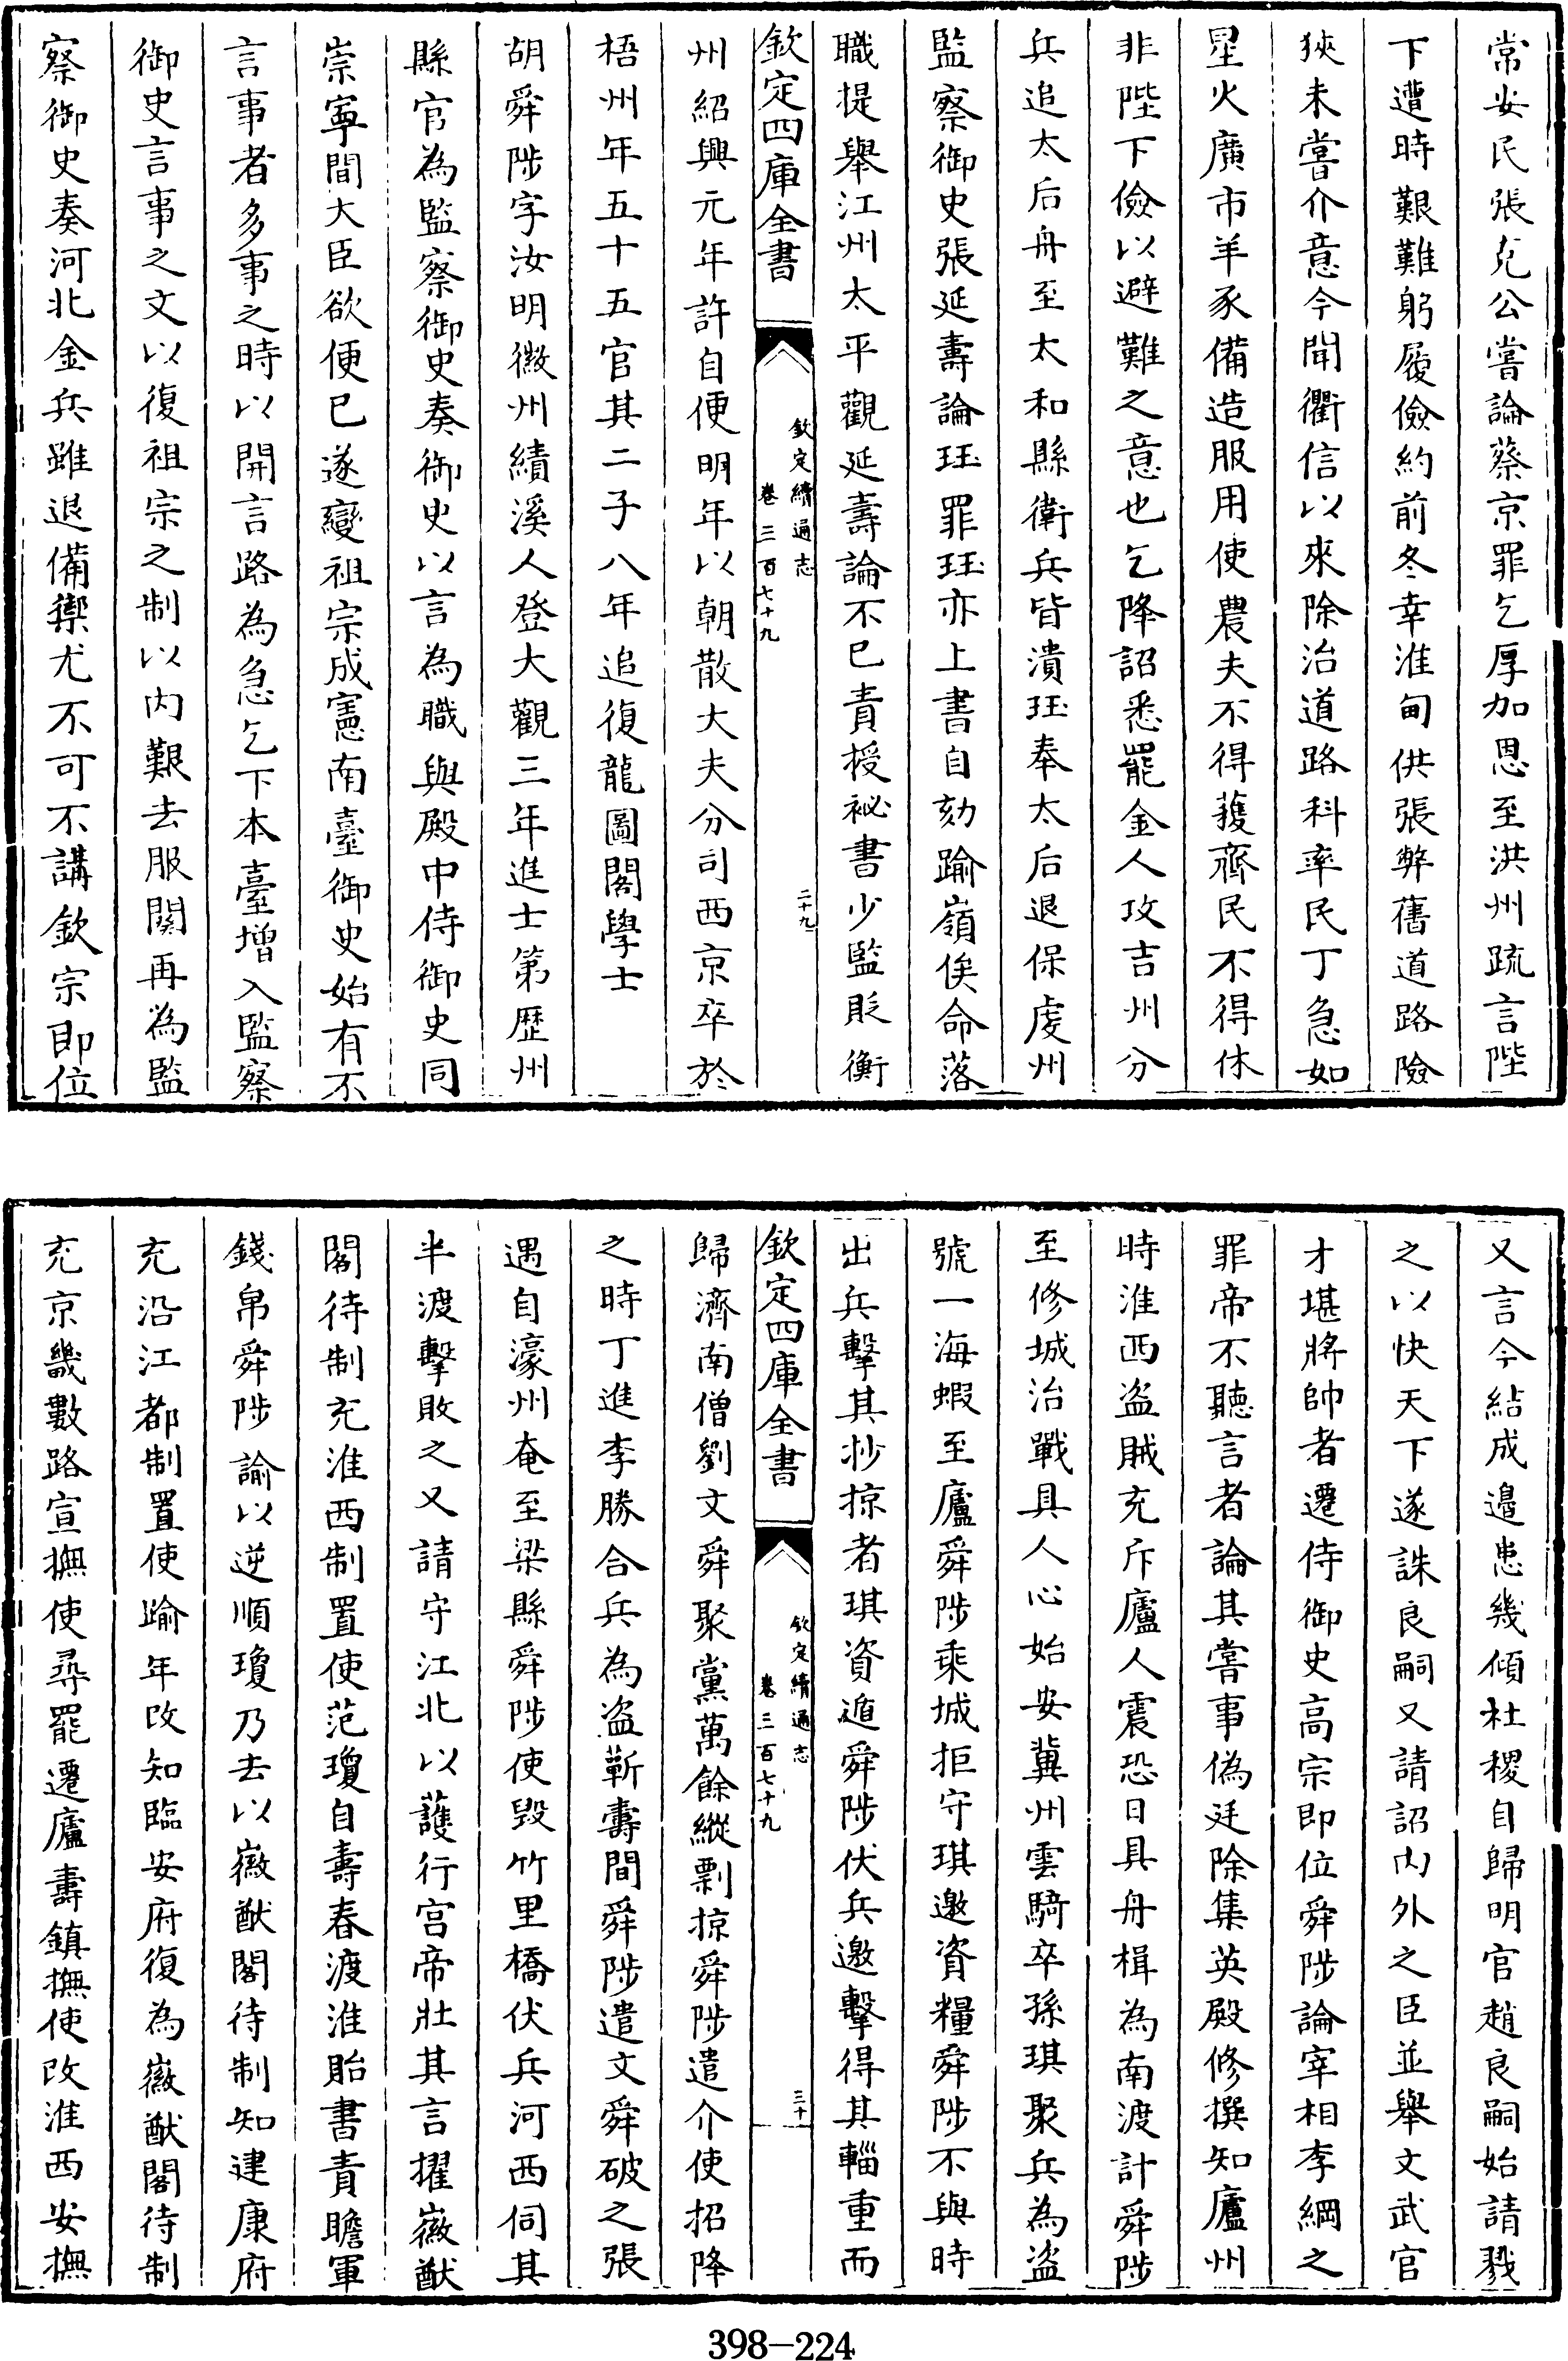 常安民張克公嘗論蔡京罪乞厚加恩至洪州疏言陛
下遭時艱難躬履儉約前冬幸淮甸供張弊舊道路險
狹未嘗介意今聞衢信以來除治道路科率民丁急如
星火廣市羊豕備造服用使農夫不得穫齊民不得休
非陛下儉以避難之意也乞降詔悉罷金人攻吉州分
兵追太后舟至太和縣衛兵皆潰珏奉太后退保虔州
監察御史張延壽論珏罪珏亦上書自劾踰嶺俟命落
職提舉江州太平觀延壽論不已責授祕書少監貶衡
欽定四庫全書
欽定續通志
卷三百七十九
二十九
州紹興元年許自便明年以朝散大夫分司西京卒於
梧州年五十五官其二子八年追復龍圖閣學士
胡舜陟字汝明徽州績溪人登大觀三年進士第歷州
縣官為監察御史奏御史以言為職與殿中侍御史同
崇寧間大臣欲便已遂變祖宗成憲南臺御史始有不
言事者多事之時以開言路為急乞下本臺增入監察
御史言事之文以復祖宗之制以內艱去服闋再為監
察御史奏河北金兵雖退備禦尤不可不講欽宗即位
又言今結成邊患幾傾社稷自歸明官趙良嗣始請戮
之以快天下遂誅良嗣又請詔內外之臣並舉文武官
才堪將帥者遷侍御史高宗即位舜陟論宰相李綱之
罪帝不聽言者論其嘗事偽廷除集英殿修撰知廬州
時淮西盜賊充斥廬人震恐日具舟楫為南渡計舜陟
至修城治戰具人心始安冀州雲騎卒孫琪聚兵為盜
號一海蝦至廬舜陟乘城拒守琪邀資糧舜陟不與時
出兵擊其抄掠者琪資遁舜陟伏兵邀擊得其輜重而
欽定四庫全書
欽定續通志
卷三百七十九
三十
歸濟南僧劉文舜聚黨萬餘縱剽掠舜陟遣介使招降
之時丁進李勝合兵為盜蘄壽間舜陟遣文舜破之張
遇自濠州奄至梁縣舜陟使毀竹里橋伏兵河西伺其
半渡擊敗之又請守江北以護行宮帝壯其言擢徽猷
閣待制充淮西制置使范瓊自壽春渡淮貽書責贍軍
錢帛舜陟諭以逆順瓊乃去以徽猷閣待制知建康府
充沿江都制置使踰年改知臨安府復為徽猷閣待制
充京畿數路宣撫使尋罷遷廬壽鎮撫使改淮西安撫
398-224